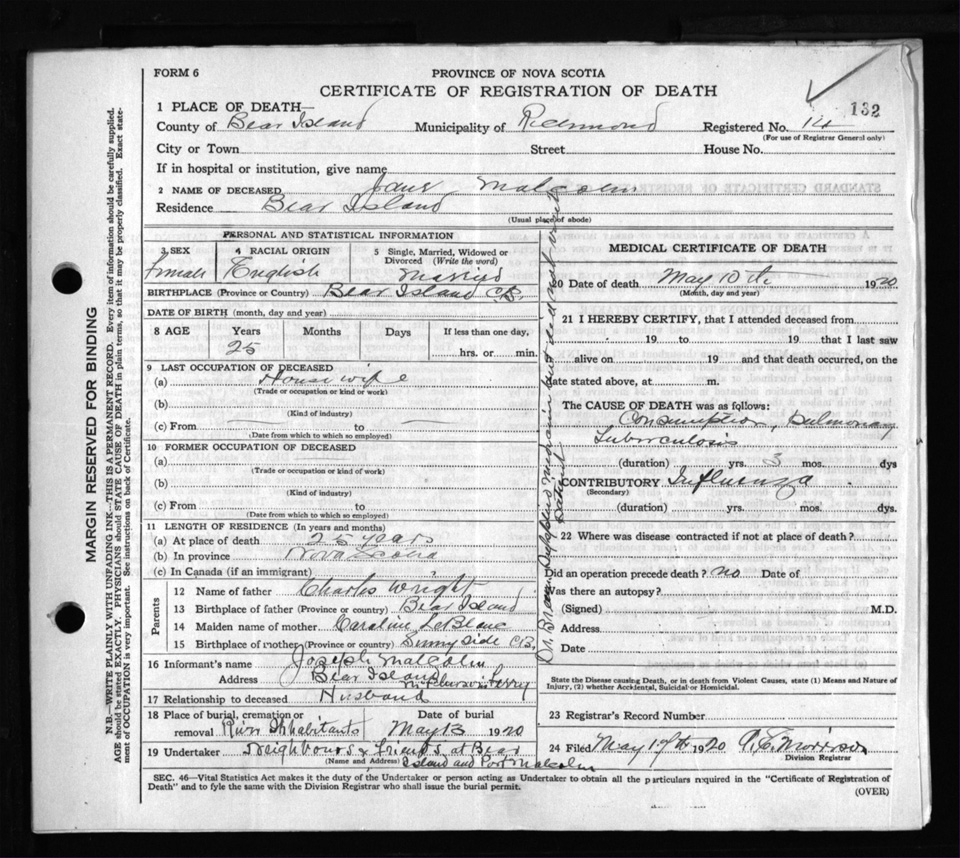 FORM 6
PROVINCE OF NOVA SCOTIA
CERTIFICATE OF REGISTRATION OF DEATH
132
1 PLACE OF DEATH—
County of Bear Island Municipality of Richmond Registered No. 14
(For use of Registrar General only)
City or Town Street House No.
If in hospital or institution, give name
2 NAME OF DECEASED Jane Malcolm
Residence Bear Island
(Usual place of abode)
PERSONAL AND STATISTICAL INFORMATION
3 SEX 4 RACIAL ORIGIN 5 Single, Married, Widowed or Divorced (Write the word)
Female English Married
BIRTHPLACE (Province or Country) Bear Island C.B.
DATE OF BIRTH (month, day and year)
8 AGE Years Months Days If less than one day,
25 hrs. or min.
9 LAST OCCUPATION OF DECEASED
(a) House wife
(Trade or occupation or kind or work)
(b)
(Kind of industry)
(c) From — to —
(Date from which to which so employed)
10 FORMER OCCUPATION OF DECEASED
(a)
(Trade or occupation or kind of work)
(b)
(Kind of industry)
(c) From to
(Date from which to which so employed)
11 LENGTH OF RESIDENCE (In years and months)
(a) At place of death 25 years
(b) In province Nova Scotia
(c) In Canada (if an immigrant)
Parents
12 Name of father Charles Wright
13 Birthplace of father (Province or country) Bear Island
14 Maiden name of mother Caroline LeBlanc
15 Birthplace of mother (Province or country) Sunny Side C.B.
16 Informant's name Joseph Malcolm
Address Bear Island
17 Relationship to deceased Husband
18 Place of burial, cremation or removal River Inhabitants Date of burial May 13 1920
19 Undertaker Neighbours & friends at Bear
(Name and Address) Island and Port Malcolm
MEDICAL CERTIFICATE OF DEATH
20 Date of death May 10th 1920
(Month, day and year)
21 I HEREBY CERTIFY, that I attended deceased from
19 to 19 that I last saw
alive on 19 and that death occurred, on the
date stated above, at m.
The CAUSE OF DEATH was as follows:
Consumption, Pulmonary
Tuberculosis
(duration) yrs. 3 mos. dys
CONTRIBUTORY Influenza
(Secondary)
(duration) yrs. mos. dys
22 Where was disease contracted if not at place of death?
Did an operation precede death? no Date of
Was there an autopsy?
(Signed) M.D.
Address
Date
State the Disease causing Death, or in death from Violent Causes, state (1) Means and Nature of Injury, (2) whether Accidental, Suicidal or Homicidal.
23 Registrar's Record Number
24 Filed May 17th 1920 P.C. Morrison
Division Registrar
SEC. 46—Vital Statistics Act makes it the duty of the Undertaker or person acting as Undertaker to obtain all the particulars required in the "Certificate of Registration of
Death" and to fyle the same with the Division Registrar who shall issue the burial permit.
(OVER)
MARGIN RESERVED FOR BINDING
N.B.—WRITE PLAINLY WITH UNFADING INK—THIS IS A PERMANENT RECORD. Every item of information should be carefully supplied.
AGE should be stated EXACTLY. PHYSICIANS should STATE CAUSE OF DEATH in plain terms, so that it may be properly classified. Exact state-
ment of OCCUPATION is very important. See instructions on back of Certificate.
Dr. Brown supplied medicine but did not visit
patient